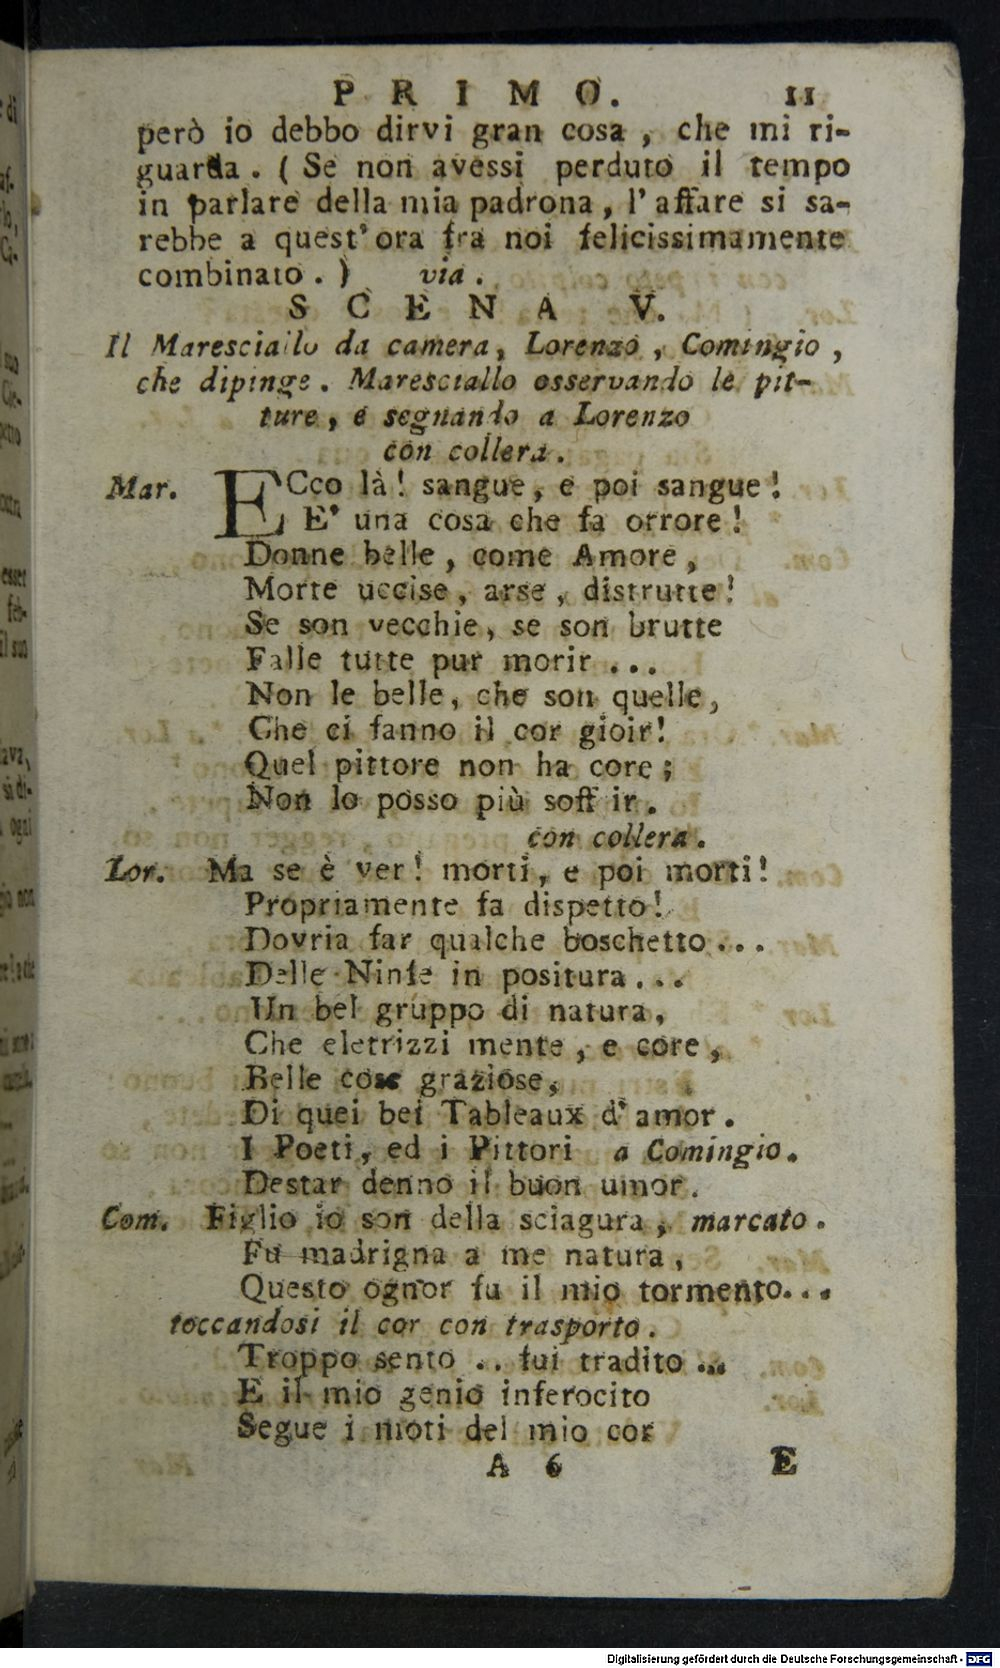 PRIMO. 11
però io debbo dirvi gran cosa, che mi ri-
guarda. (Se non avessi perduto il tempo
in parlare della mia padrona, l'affare si sa-
rebbe a quest'ora fra noi felicissimamente
combinato.) via.
SCENA V.
Il Maresciallo da camera, Lorenzo, Comingio,
che dipinge. Maresciallo osservando le pit-
ture, e segnando a Lorenzo
con collera.
Mar. ECco là! sangue, e poi sangue!
E' una cosa che fa orrore!
Donne belle, come Amore,
Morte uccise, arse, distrutte!
Se son vecchie, se son brutte
Falle tutte pur morir ...
Non le belle, che son quelle,
Che ci fanno il cor gioir!
Quel pittore non ha core;
Non lo posso più soff ir.
con collera.
Lor. Ma se è ver! morti, e poi morti!
Propriamente fa dispetto!
Dovria far qualche boschetto...
Delle Ninfe in positura...
Un bel gruppo di natura,
Che eletrizzi mente, e core,
Belle cose graziose,
Di quei bei Tableaux d'amor.
I Poeti, ed i Pittori a Comingio.
Destar denno il buon umor.
Com. Figlio io son della sciagura, marcato.
Fu madrigna a me natura,
Questo ognor fu il mio tormento...
toccandosi il cor con trasporto.
Troppo sento .. fui tradito ...
E il mio genio inferocito
Segue i moti del mio cor
A 6 E
Digitalisierung gefördert durch die Deutsche Forschungsgemeinschaft - DFG